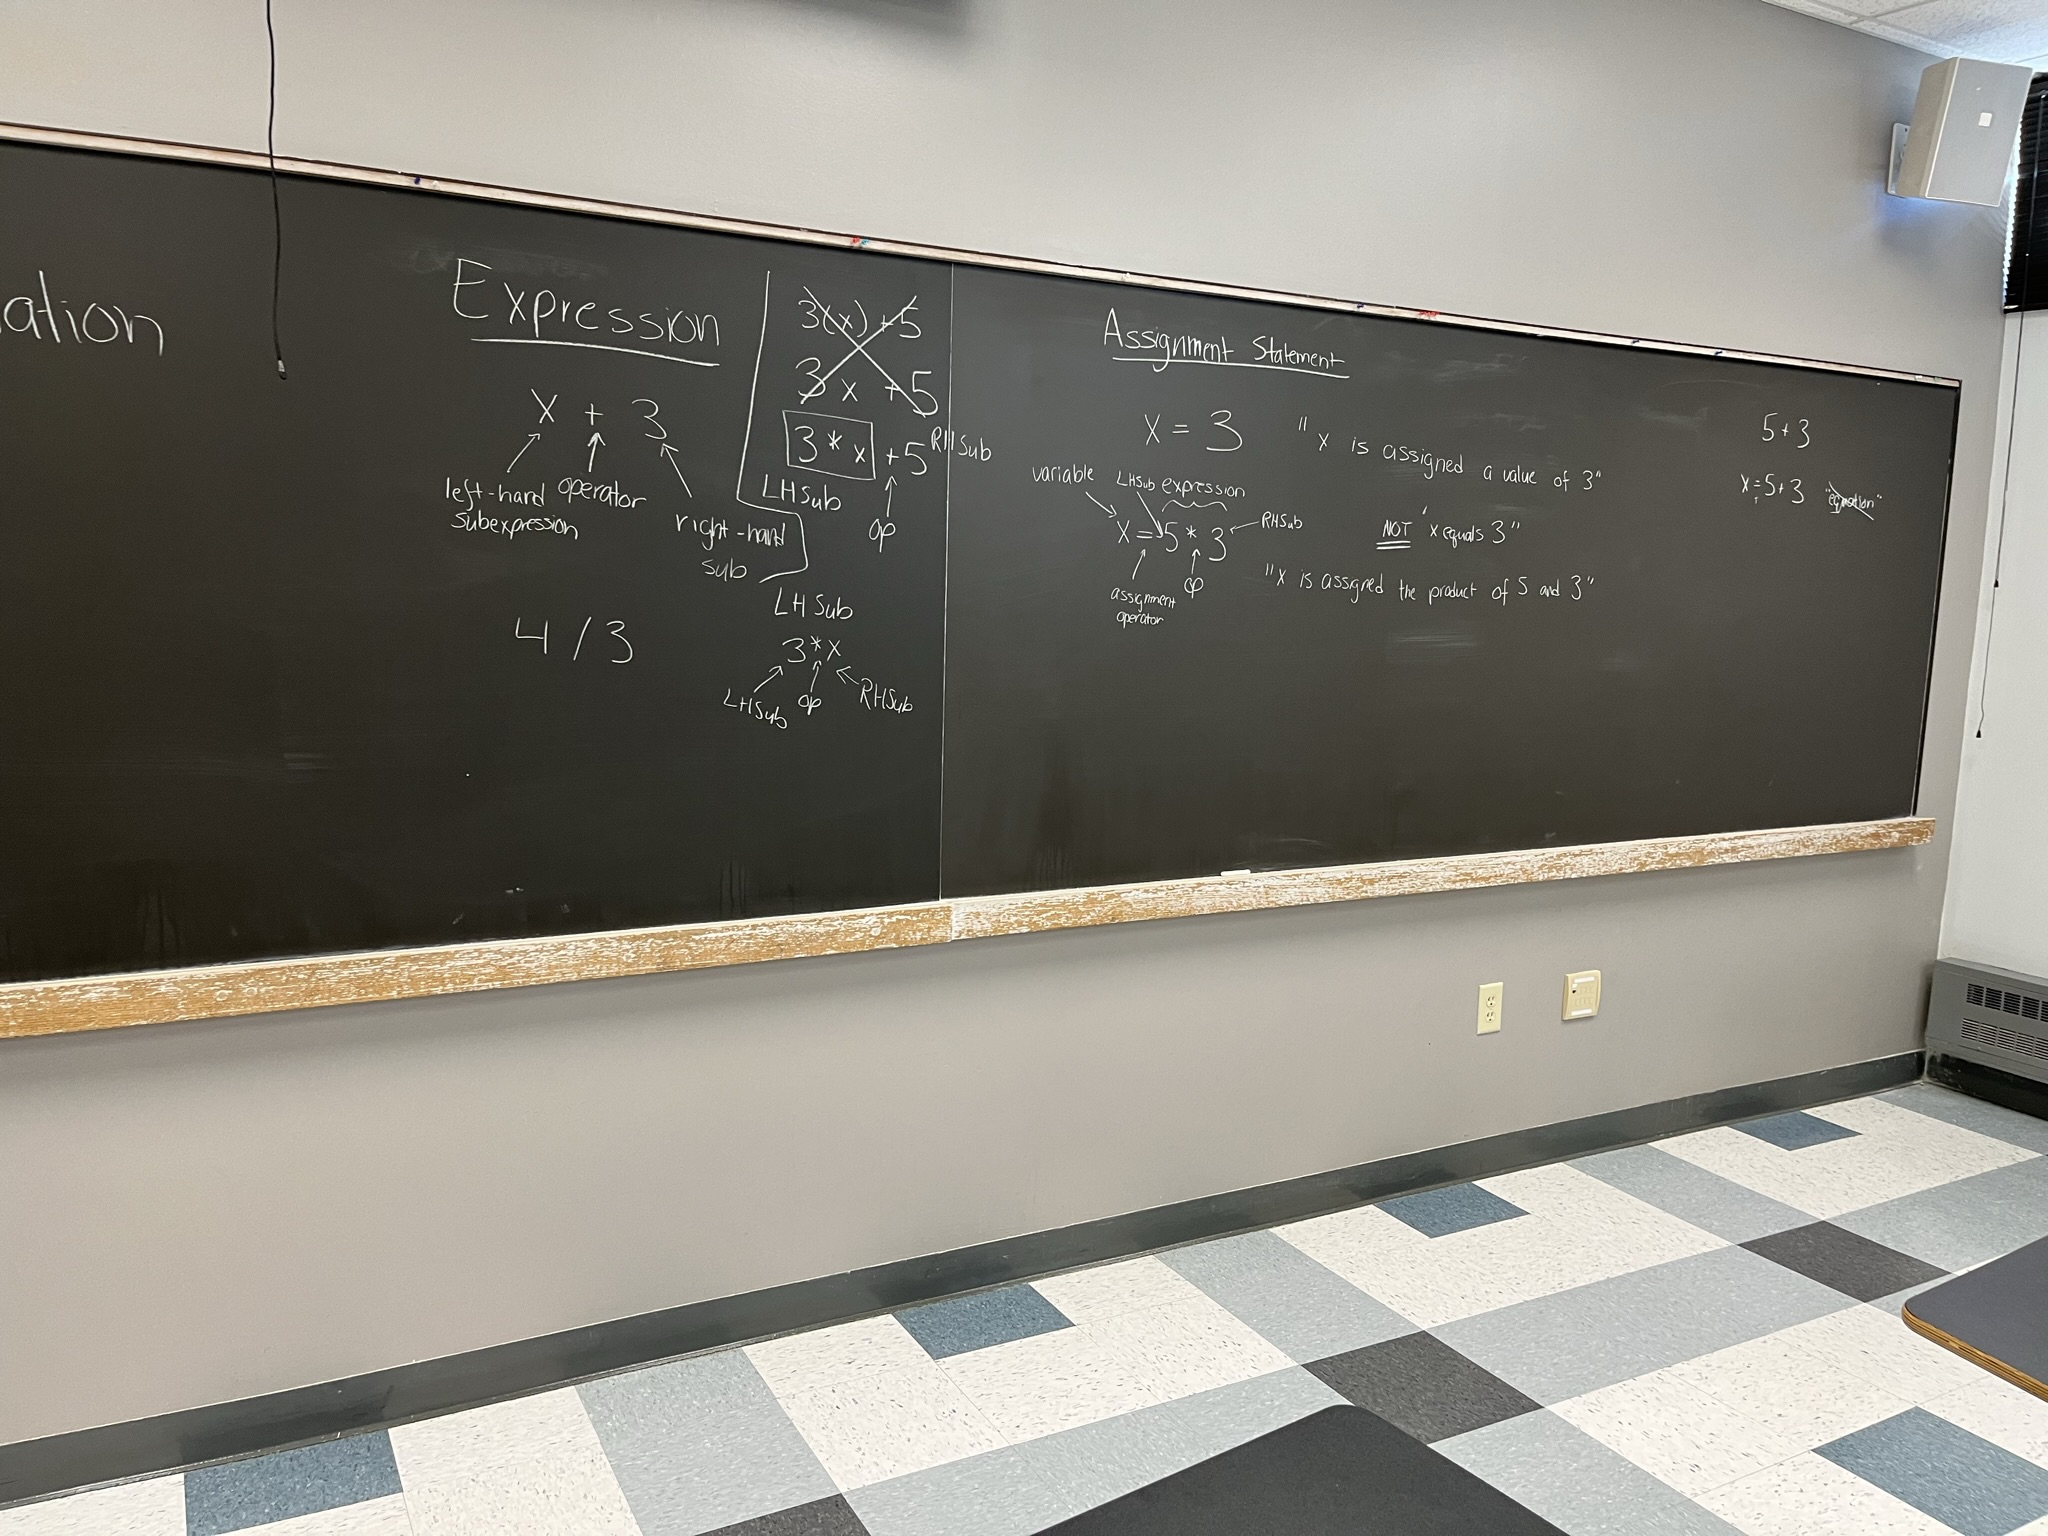 ation
Expression
x + 3
left-hand
subexpression
operator
right-hand
sub
4 / 3
3(x) + 5
3 x + 5
3 * x + 5
RHSub
LHSub
op
LHSub
3*x
LHSub
op
RHSub
Assignment Statement
x = 3
"x is assigned a value of 3"
variable
LHSub
expression
x = 5 * 3
RHSub
assignment
operator
op
NOT "x equals 3"
"x is assigned the product of 5 and 3"
5 + 3
x = 5 + 3 "equation"